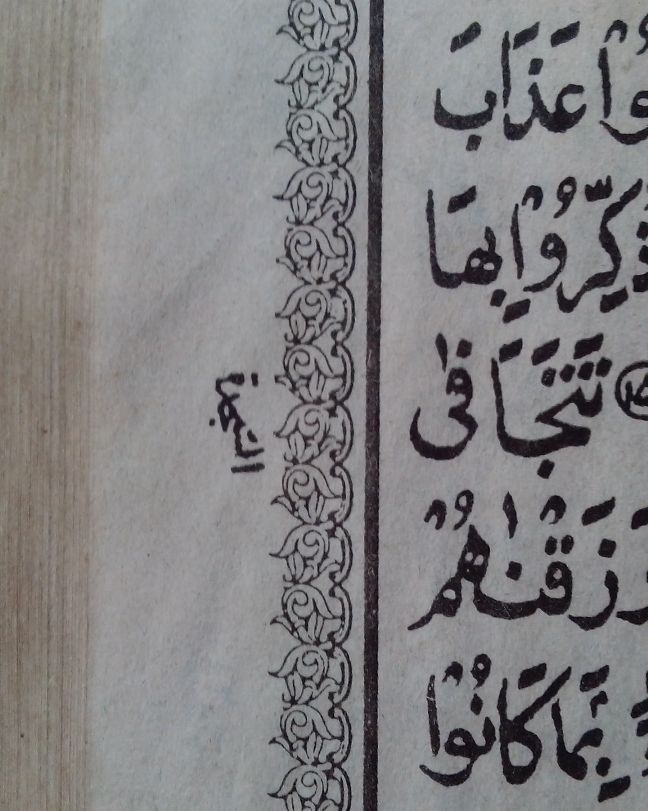 وْا عَذَابَ
ذُكِّرُوْا بِهَا
تَتَجَافٰى
رَزَقْنٰهُمْ
بِمَا كَانُوْا
السجدة